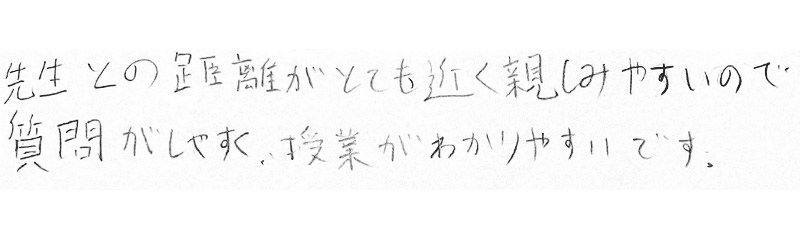 先生との距離がとても近く親しみやすいので
質問がしやすく、授業がわかりやすいです。